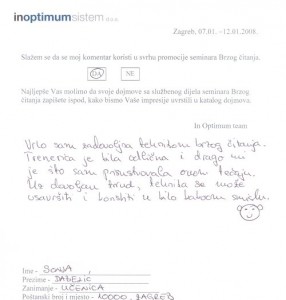 inoptimumsistem d.o.o.
Zagreb, 07.01. -12.01.2008.
Slažem se da se moj komentar koristi u svrhu promocije seminara Brzog čitanja.
DA NE
Najljepše Vas molimo da svoje dojmove sa službenog dijela seminara Brzog
čitanja zapišete ispod, kako bismo Vaše impresije uvrstili u katalog dojmova.
In Optimum team
Vrlo sam zadovoljna tehnikom brzog čitanja.
Trenerica je bila odlična i drago mi
je što sam prisustvovala ovom tečaju.
Uz dovoljan trud, tehnika se može
usavršiti i koristiti u bilo kakvom smislu.
Ime - SONJA
Prezime -
Zanimanje - UČENICA
Poštanski broj i mjesto - 10000 ZAGREB